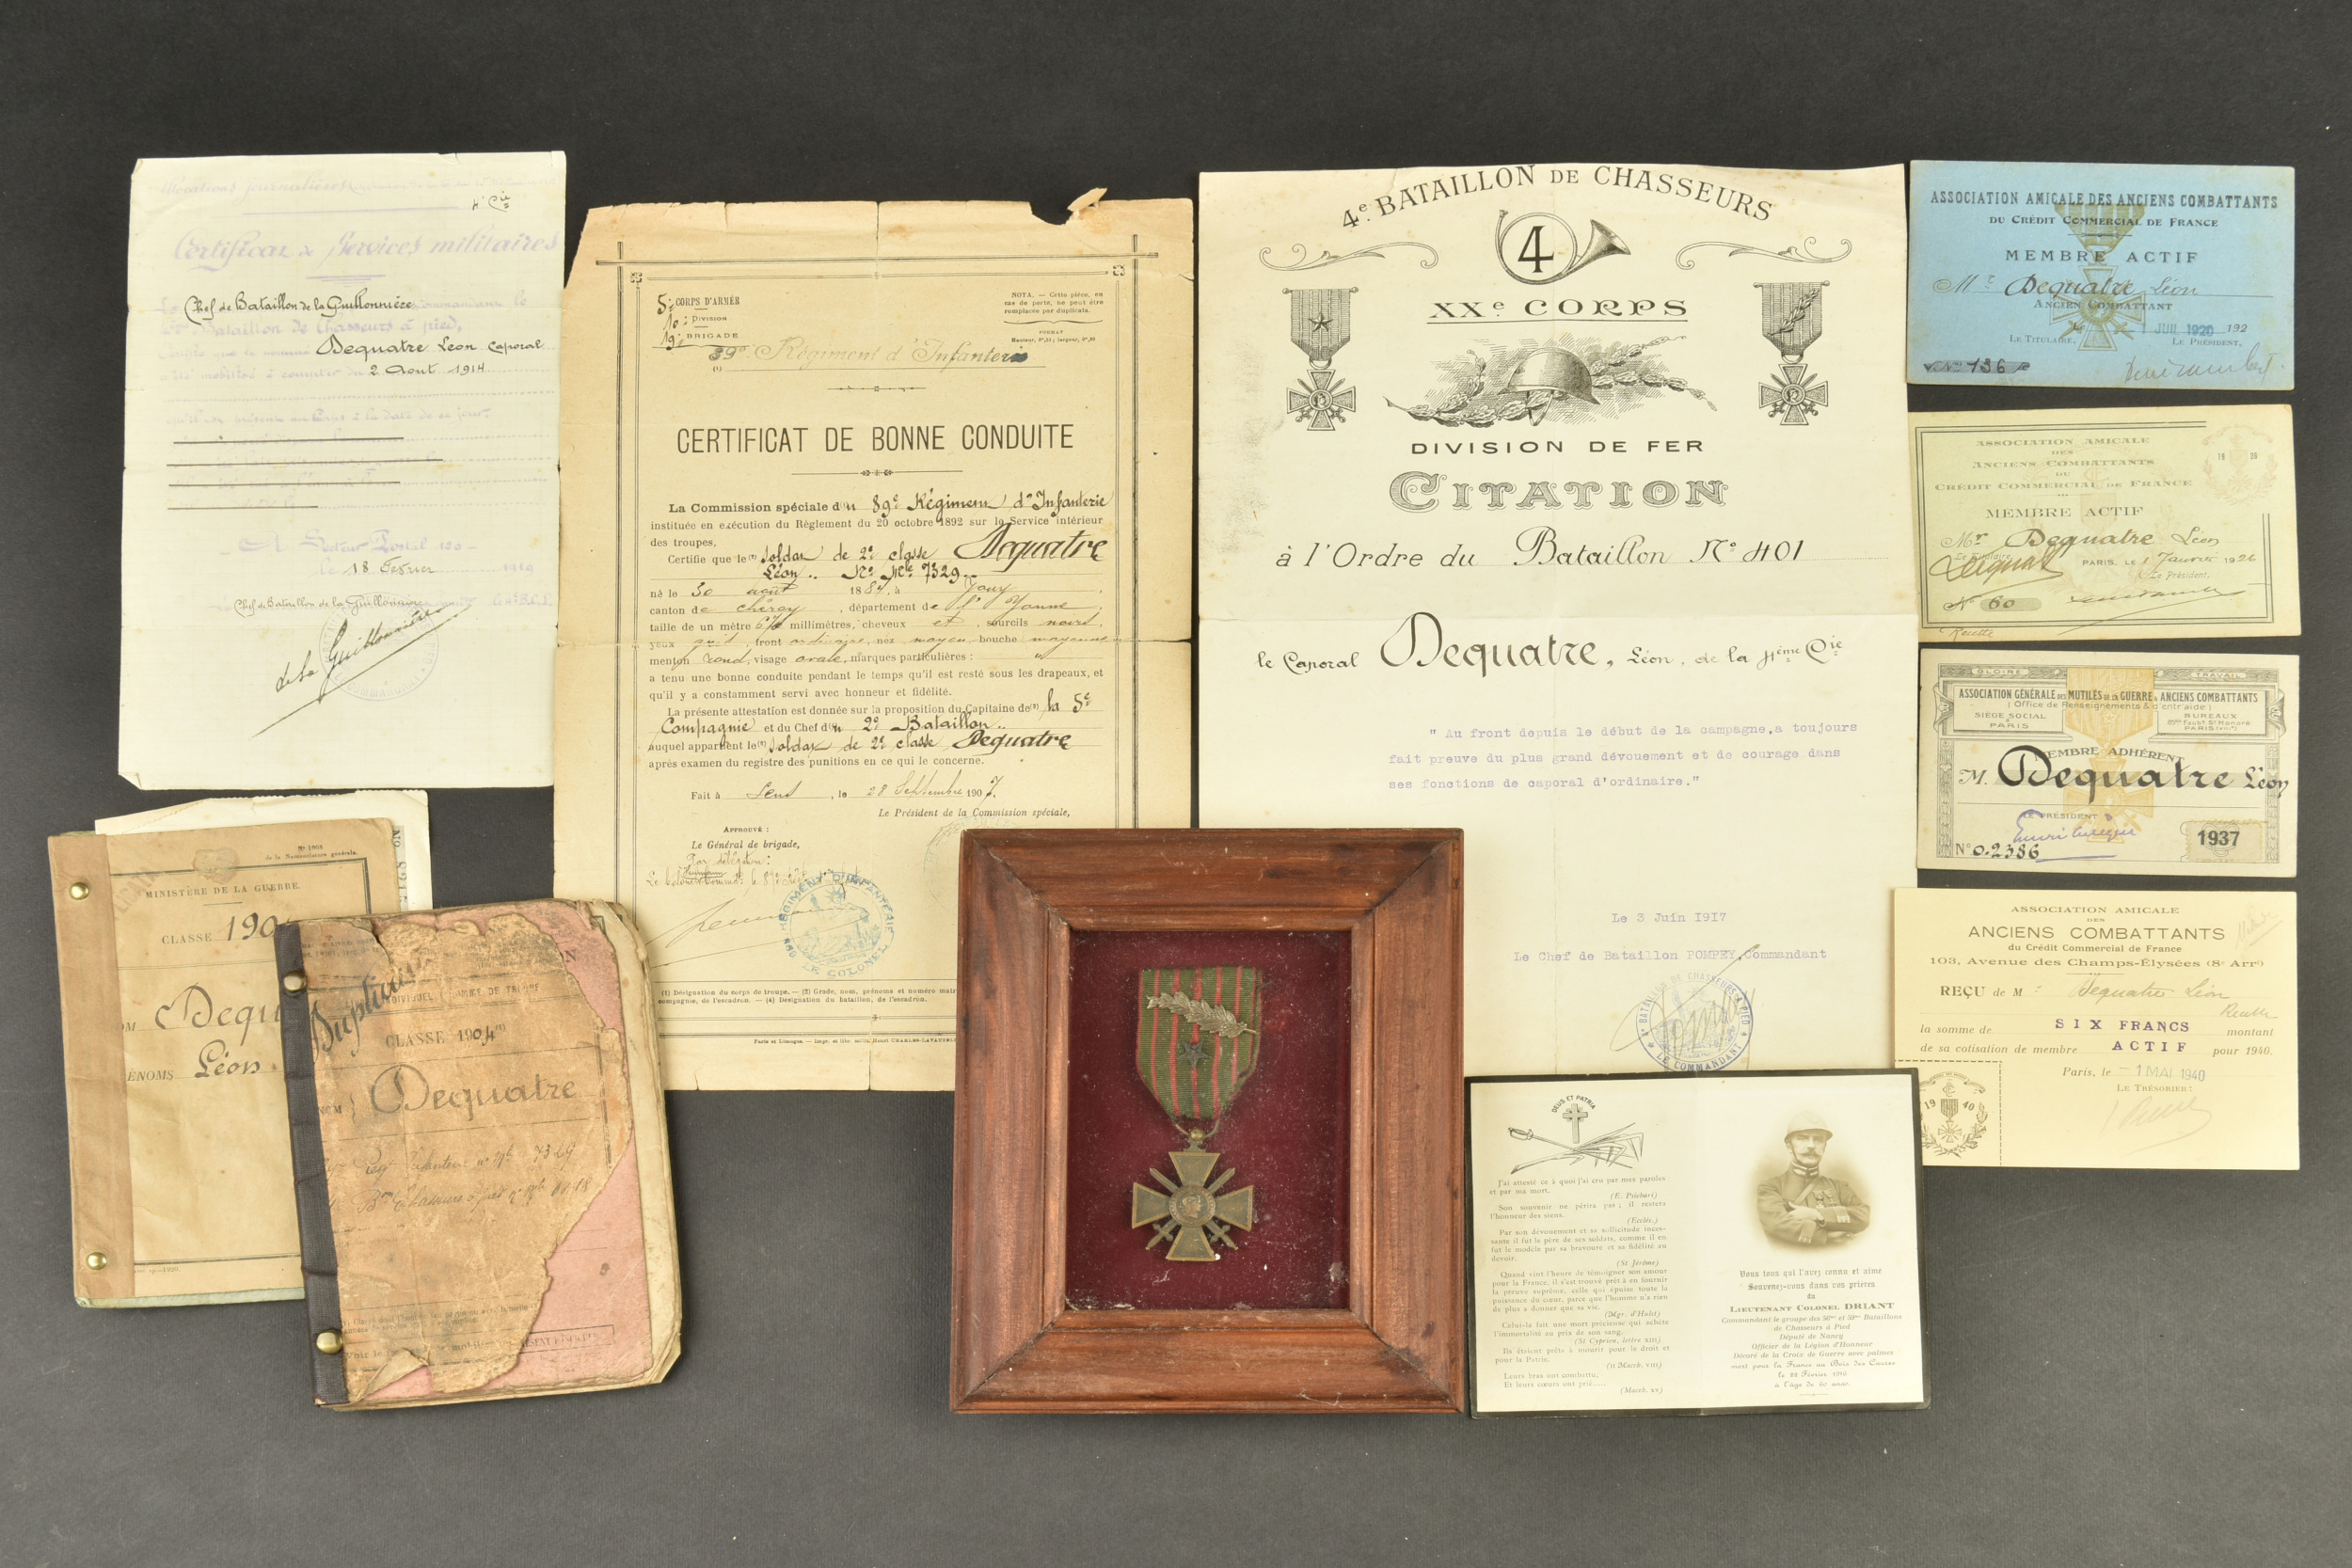 Allocations journalières
4e Cie
Certificat de Services militaires
Le Chef de Bataillon de la Guillonnière Commandant le
Bataillon de Chasseurs à pied,
Certifie que le nommé Dequatre Léon Caporal
a été mobilisé à compter du 2 Aout 1914
qu'il est présent au Corps à la date de ce jour.
A Secteur Postal 120
le 18 Fevrier 1919
Chef de Bataillon de la Guillonnière
de la Guillonnière
No 1068
de la Nomenclature générale.
MINISTÈRE DE LA GUERRE.
CLASSE 190
Dequ
ÉNOMS Léon
Duplicata
CLASSE 1904 (1)
NOM Dequatre
7329
5e CORPS D'ARMÉE
10e DIVISION
19e BRIGADE
89e Régiment d'Infanterie
(1)
NOTA. — Cette pièce, en
cas de perte, ne peut être
remplacée par duplicata.
FORMAT
CERTIFICAT DE BONNE CONDUITE
La Commission spéciale d(1)u 89e Régiment d'Infanterie
instituée en exécution du Règlement du 20 octobre 1892 sur le Service intérieur
des troupes,
Certifie que le(2) Soldat de 2e classe Dequatre
Léon .. No Mle 7329
né le 30 août 1884, à Jouy
canton de Chéroy, département de l'Yonne,
taille de un mètre 670 millimètres, cheveux et sourcils noirs,
yeux gris, front ordinaire, nez moyen, bouche moyenne
menton rond, visage ovale, marques particulières : "
a tenu une bonne conduite pendant le temps qu'il est resté sous les drapeaux, et
qu'il y a constamment servi avec honneur et fidélité.
La présente attestation est donnée sur la proposition du Capitaine de(3) la 5e
Compagnie et du Chef d(4)u 2e Bataillon
auquel appartient le(2) Soldat de 2e classe Dequatre
après examen du registre des punitions en ce qui le concerne.
Fait à Sens, le 28 Septembre 1907.
Le Président de la Commission spéciale,
APPROUVÉ :
Le Général de brigade,
Par délégation :
RÉGIMENT D'INFANTERIE
LE COLONEL
(1) Désignation du corps de troupe. — (2) Grade, nom, prénoms et numéro matr
compagnie, de l'escadron. — (4) Désignation du bataillon, de l'escadron.
Paris et Limoges. — Impr. et libr. milit. Henri CHARLES-LAVAUZELLE
4e BATAILLON DE CHASSEURS
4
XXe CORPS
DIVISION DE FER
CITATION
à l'Ordre du Bataillon No 401
le Caporal Dequatre, Léon, de la 4ème Cie
" Au front depuis le début de la campagne, a toujours
fait preuve du plus grand dévouement et de courage dans
ses fonctions de caporal d'ordinaire."
Le 3 Juin 1917
Le Chef de Bataillon POMPEY, Commandant
4e BATAILLON DE CHASSEURS A PIED
LE COMMANDANT
ASSOCIATION AMICALE DES ANCIENS COMBATTANTS
DU CRÉDIT COMMERCIAL DE FRANCE
MEMBRE ACTIF
Mr Dequatre Léon
ANCIEN COMBATTANT
1 JUIL 1920 192
LE TITULAIRE, LE PRÉSIDENT,
No 136
ASSOCIATION AMICALE
DES
ANCIENS COMBATTANTS
DU
CRÉDIT COMMERCIAL DE FRANCE
1926
MEMBRE ACTIF
Mr Dequatre Léon
Le Titulaire
PARIS, LE 1 Janvier 1926
Le Président,
No 60
Recette
GLOIRE TRAVAIL
ASSOCIATION GÉNÉRALE DES MUTILÉS DE LA GUERRE & ANCIENS COMBATTANTS
(Office de Renseignements & d'entr'aide)
SIÈGE SOCIAL
PARIS
BUREAUX
Faubg St Honoré
PARIS (VIIIe)
MEMBRE ADHÉRENT
M. Dequatre Léon
LE PRÉSIDENT
No 0.2386
1937
ASSOCIATION AMICALE
DES
ANCIENS COMBATTANTS
du Crédit Commercial de France
103, Avenue des Champs-Élysées (8e Arrt)
REÇU de M r Dequatre Léon
Recette
la somme de SIX FRANCS montant
de sa cotisation de membre ACTIF pour 1940.
Paris, le - 1 MAI 1940
LE TRÉSORIER :
1940
DEUS ET PATRIA
J'ai attesté ce à quoi j'ai cru par mes paroles
et par ma mort.
(E. Psichari)
Son souvenir ne périra pas ; il restera
l'honneur des siens.
(Ecclés.)
Par son dévouement et sa sollicitude inces-
sante il fut le père de ses soldats, comme il en
fut le modèle par sa bravoure et sa fidélité au
devoir.
(St Jérôme)
Quand vint l'heure de témoigner son amour
pour la France, il s'est trouvé prêt à en fournir
la preuve suprême, celle qui épuise toute la
puissance du cœur, parce que l'homme n'a rien
de plus à donner que sa vie.
(Mgr. d'Hulst)
Celui-là fait une mort précieuse qui achète
l'immortalité au prix de son sang.
(St Cyprien, lettre XIII)
Ils étaient prêts à mourir pour le droit et
pour la Patrie.
(II Macch. VIII)
Leurs bras ont combattu,
Et leurs cœurs ont prié.....
(Macch. XV)
Vous tous qui l'avez connu et aimé
Souvenez-vous dans vos prières
du
LIEUTENANT COLONEL DRIANT
Commandant le groupe des 56me et 59me Bataillons
de Chasseurs à Pied
Député de Nancy
Officier de la Légion d'Honneur
Décoré de la Croix de Guerre avec palmes
mort pour la France au Bois des Caures
le 22 Février 1916
à l'âge de 60 ans.